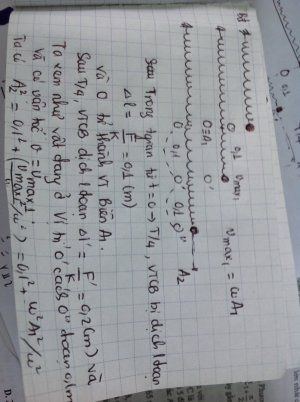 O 0,1 vmax₁
O≡A₁ O'
vmax₁ = ωA₁
O 0,1 O' 0,1 O''
A₂
Sau Trong khoảng từ t=0→T/4, VTCB bị dịch 1 đoạn
Δl = F/K = 0,1 (m)
và O trở thành vị trí biên A₁.
Sau T/4, VTCB dịch 1 đoạn Δl' = F'/K = 0,2(m) và
Ta xem như vật đang ở vị trí O' cách O'' đoạn 0,1m
Và có vận tốc v = vmax₁.
Ta có A₂² = 0,1² + (vmax₁²/ω²) = 0,1² + ω²A₁²/ω²